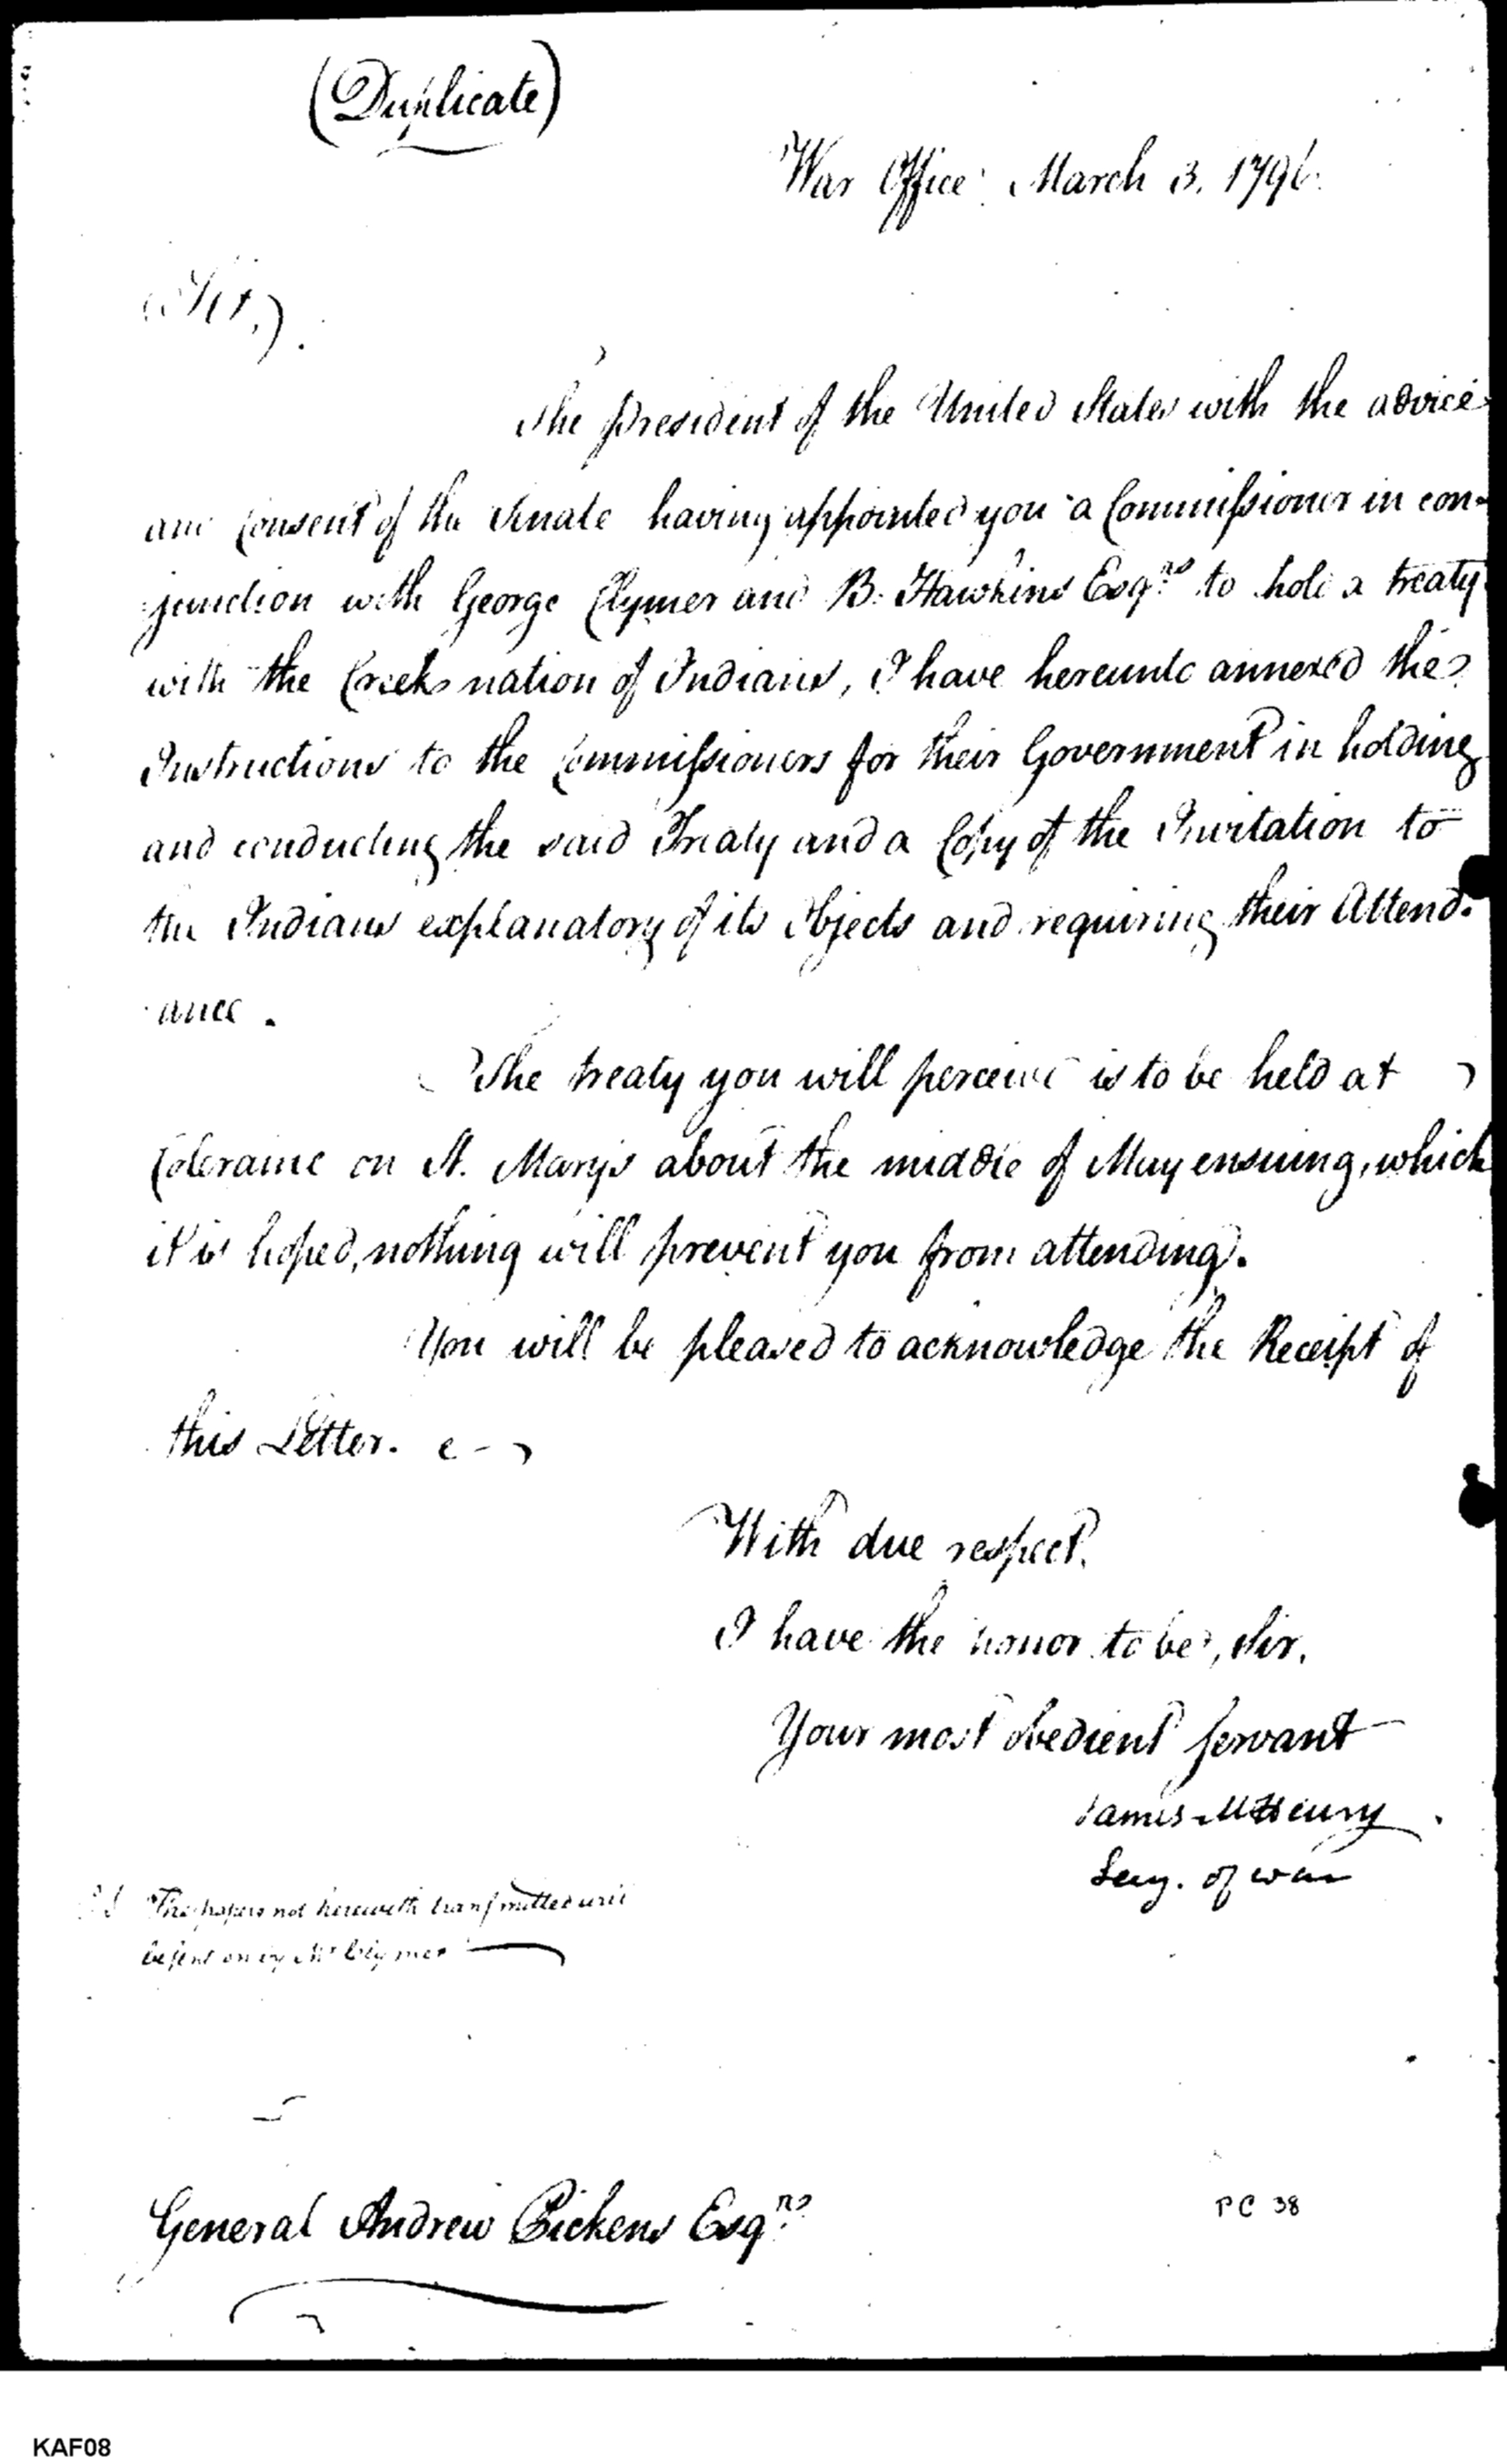 (Duplicate)
War Office March 3. 1796.
Sir,
The president of the United States with the advice
and Consent of the Senate having appointed you a Commissioner in con-
-junction with George Clymer and B. Hawkins Esqrs to hold a treaty
with the Creek nation of Indians, I have hereunto annexed the
Instructions to the Commissioners for their Government in holding
and conducting the said Treaty and a Copy of the Invitation to
the Indians explanatory of its Objects and requiring their Attend-
-ance.
The treaty you will perceive is to be held at
Coleraine on St. Mary's about the middle of May ensuing, which
it is hoped, nothing will prevent you from attending.
You will be pleased to acknowledge the Receipt of
this Letter.
With due respect,
I have the honor to be, Sir,
Your most obedient servant
James McHenry
Secy. of war
The papers not herewith transmitted will
be sent on by Mr Clymer
General Andrew Pickens Esqrs
PC 38
KAF08